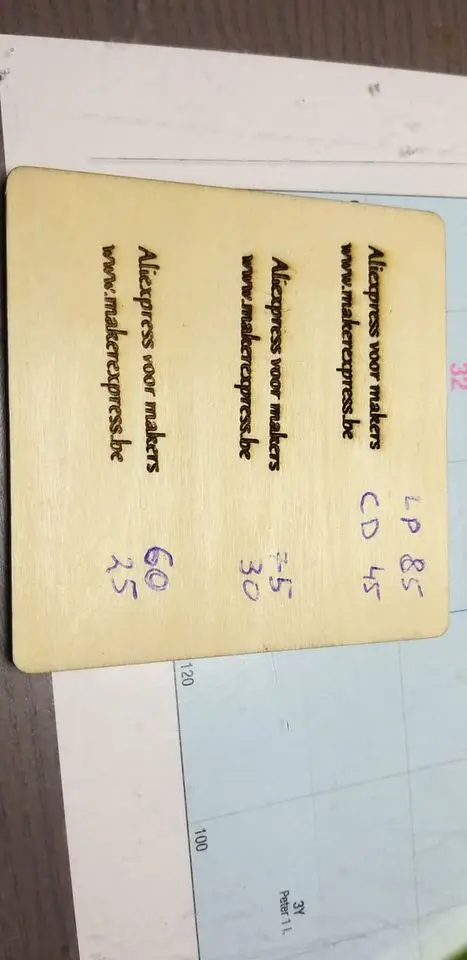 Aliexpress voor makers
www.makerexpress.be
LP 85
CD 45
Aliexpress voor makers
www.makerexpress.be
75
30
Aliexpress voor makers
www.makerexpress.be
60
25
32
120
100
3Y
Peter 1 I.